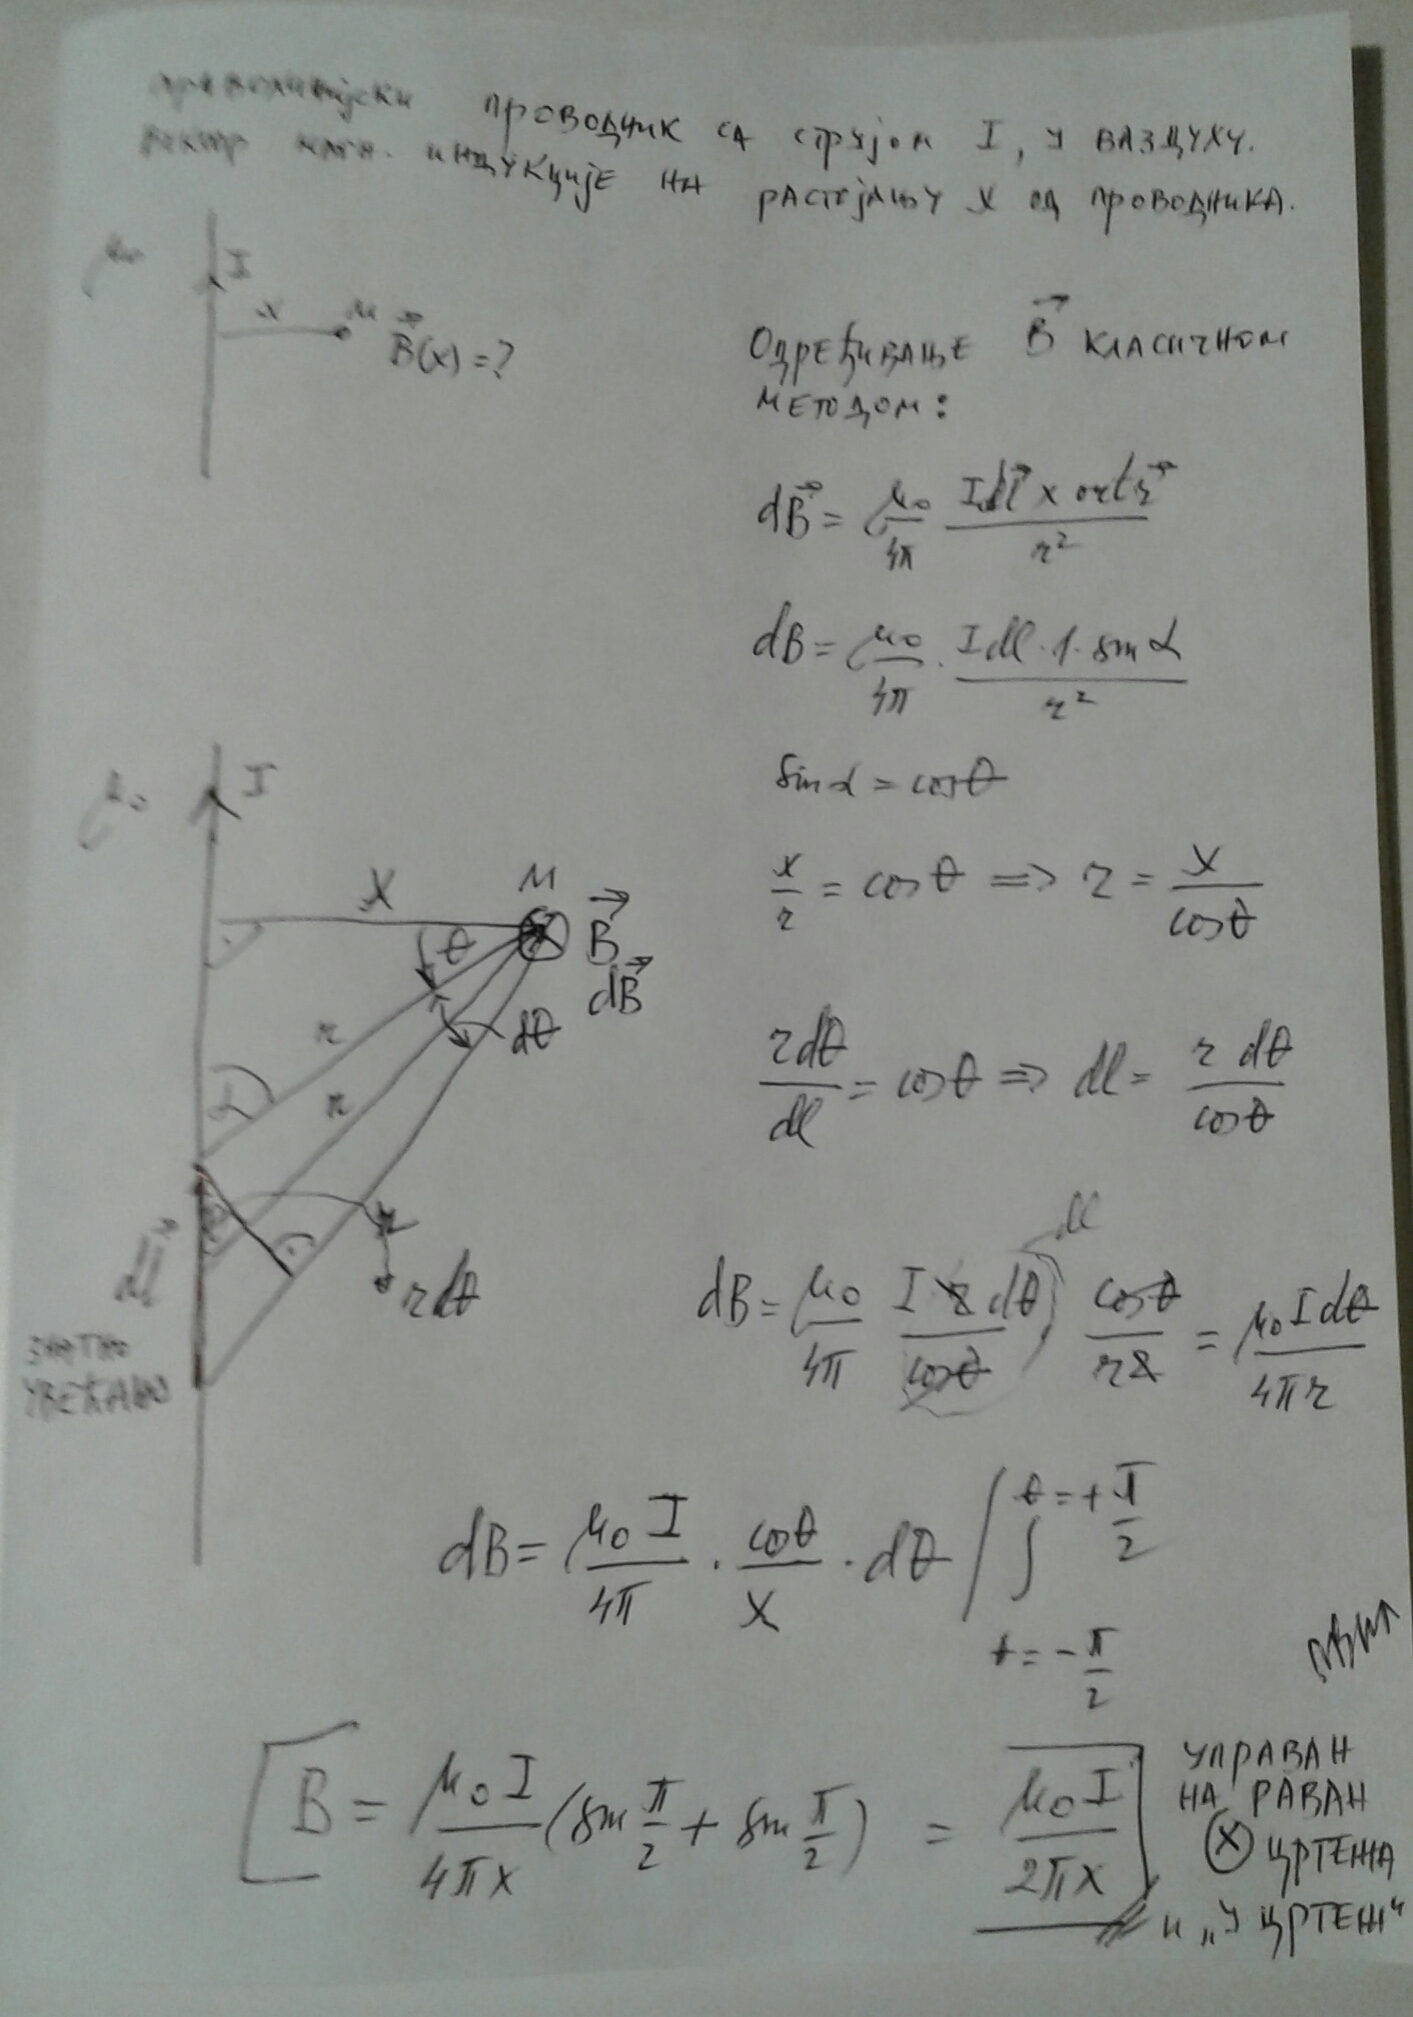 Праволинијски проводник са струјом I, у ваздуху.
Вектор магн. индукције на растојању x од проводника.
μ₀ I
x M B⃗(x) = ?
Одређивање B⃗ класичном
методом:
dB⃗ = μ₀/4π · I dl⃗ x ort r⃗ / r²
dB = μ₀/4π · I dl · 1 · sin α / r²
sin α = cos θ
x/r = cos θ => r = x/cos θ
r dθ/dl = cos θ => dl = r dθ/cos θ
μ₀ I
x M
θ B⃗
dB⃗
r dθ
r
α
dl⃗ r dθ
знатно
увећано
dl
dB = μ₀/4π · I r dθ/cos θ · cos θ/r² = μ₀ I dθ/4π r
dB = μ₀ I/4π · cos θ/x · dθ / ∫ θ = + π/2
θ = - π/2
B = μ₀ I/4πx (sin π/2 + sin π/2) = μ₀ I/2πx
управан
на раван
⊗ цртежа
и „у цртеж“